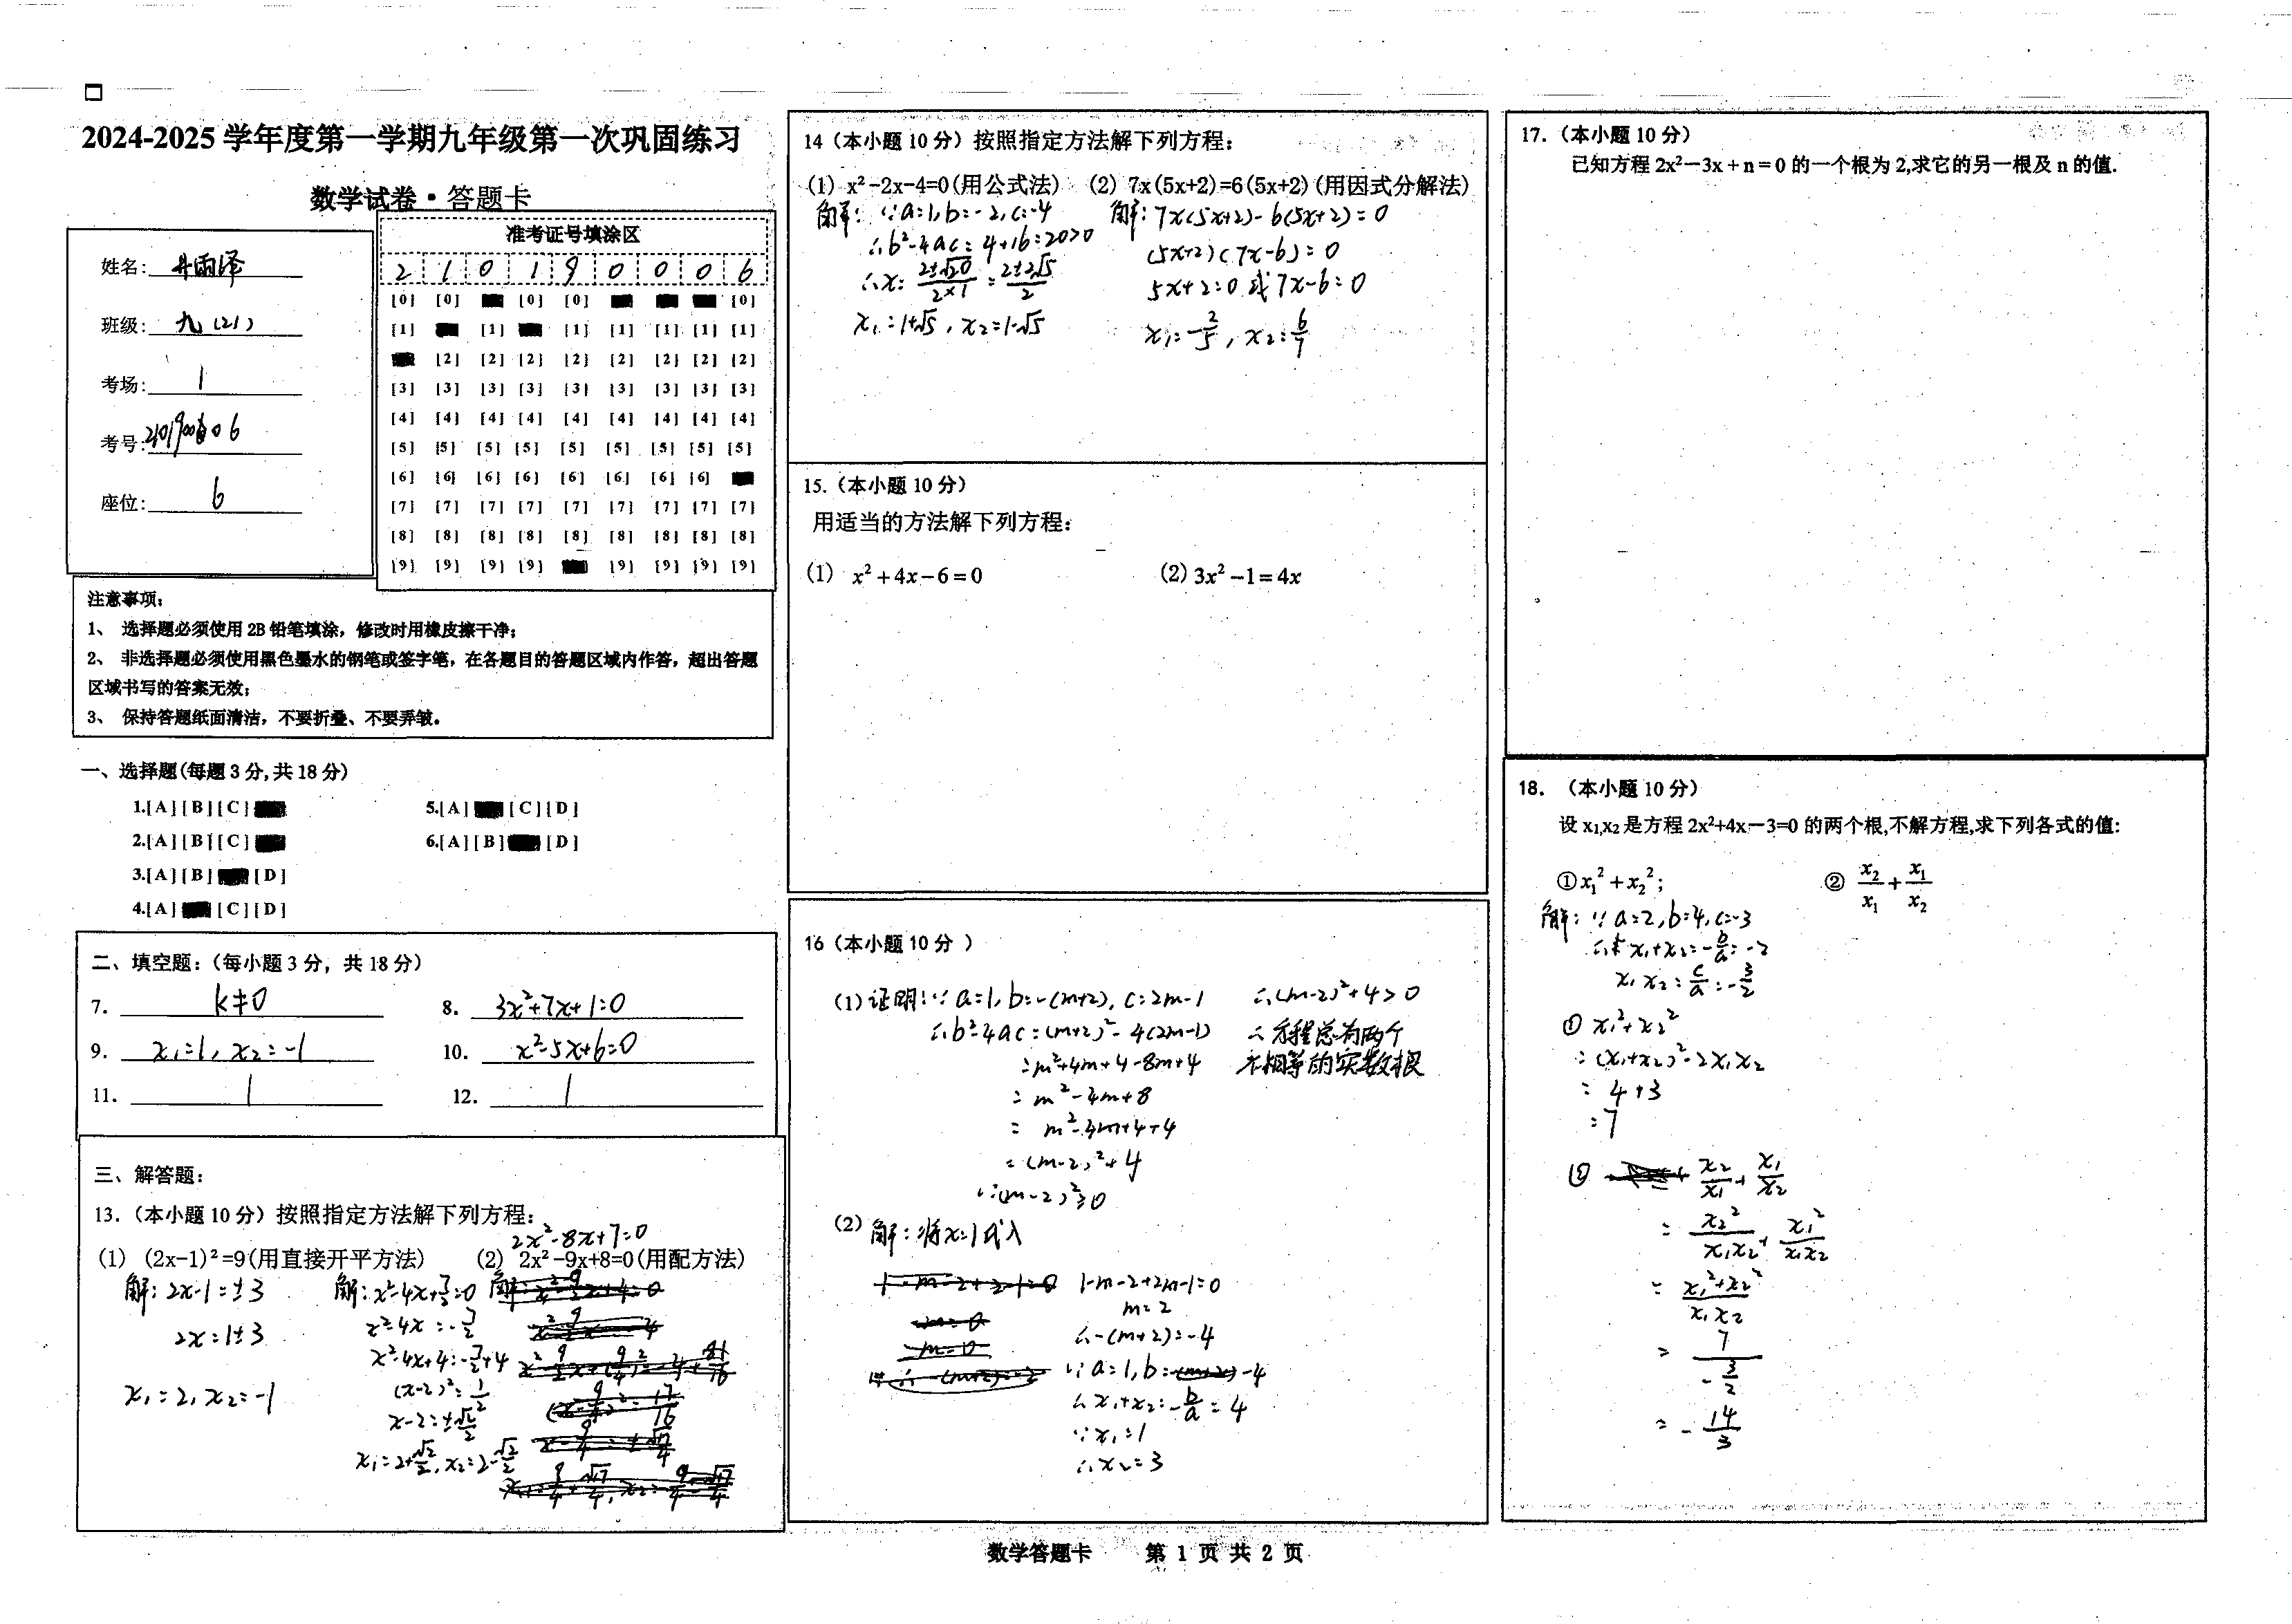 2024-2025 学年度第一学期九年级第一次巩固练习
数学试卷·答题卡
姓名：井雨泽
班级：九（21）
考场：1
考号：
座位：6
准考证号填涂区
2 1 0 1 9 0 0 0 6
[0] [0] [0] [0] [0]
[1] [1] [1] [1] [1] [1] [1]
[2] [2] [2] [2] [2] [2] [2] [2]
[3] [3] [3] [3] [3] [3] [3] [3] [3]
[4] [4] [4] [4] [4] [4] [4] [4] [4]
[5] [5] [5] [5] [5] [5] [5] [5] [5]
[6] [6] [6] [6] [6] [6] [6] [6]
[7] [7] [7] [7] [7] [7] [7] [7] [7]
[8] [8] [8] [8] [8] [8] [8] [8] [8]
[9] [9] [9] [9] [9] [9] [9] [9]
注意事项：
1、 选择题必须使用 2B 铅笔填涂，修改时用橡皮擦干净；
2、 非选择题必须使用黑色墨水的钢笔或签字笔，在各题目的答题区域内作答，超出答题
区域书写的答案无效；
3、 保持答题纸面清洁，不要折叠、不要弄皱。
一、选择题(每题 3 分,共 18 分)
1.[A][B][C] 5.[A] [C][D]
2.[A][B][C] 6.[A][B] [D]
3.[A][B] [D]
4.[A] [C][D]
二、填空题：（每小题 3 分，共 18 分）
7. k≠0 8. 3x²+7x+1=0
9. x₁=1, x₂=-1 10. x²-5x+6=0
11. 1 12. 1
三、解答题：
13.（本小题 10 分）按照指定方法解下列方程：
2x²-8x+7=0
(1) (2x-1)²=9(用直接开平方法) (2) 2x²-9x+8=0(用配方法)
解：2x-1=±3
2x=1±3
x₁=2, x₂=-1
解：x²-4x+7/2=0
x²-4x=-7/2
x²-4x+4=-7/2+4
(x-2)²=1/2
x-2=±√2/2
x₁=2+√2/2, x₂=2-√2/2
14（本小题 10 分）按照指定方法解下列方程：
(1) x²-2x-4=0(用公式法) (2) 7x(5x+2)=6(5x+2)(用因式分解法)
解：∵a=1,b=-2,c=-4
∴b²-4ac=4+16=20>0
∴x=(2±√20)/(2×1)=(2±2√5)/2
x₁=1+√5, x₂=1-√5
解：7x(5x+2)-6(5x+2)=0
(5x+2)(7x-6)=0
5x+2=0 或 7x-6=0
x₁=-2/5, x₂=6/7
15.（本小题 10 分）
用适当的方法解下列方程：
(1) x²+4x-6=0 (2) 3x²-1=4x
16（本小题 10 分 ）
(1) 证明：∵a=1,b=-(m+2),c=2m-1
∴b²-4ac=(m+2)²-4(2m-1)
=m²+4m+4-8m+4
=m²-4m+8
=m²-4m+4+4
=(m-2)²+4
∵(m-2)²≥0
∴(m-2)²+4>0
∴方程总有两个
不相等的实数根
(2) 解：将x=1代入
1-m-2+2m-1=0
m=2
∴-(m+2)=-4
∵a=1,b=-4
∴x₁+x₂=-b/a=4
∵x₁=1
∴x₂=3
17.（本小题 10 分）
已知方程 2x²－3x + n = 0 的一个根为 2,求它的另一根及 n 的值.
18. （本小题 10 分）
设 x₁,x₂ 是方程 2x²+4x－3=0 的两个根,不解方程,求下列各式的值:
①x₁²+x₂²； ② x₂/x₁+x₁/x₂
解：∵a=2,b=4,c=-3
∴x₁+x₂=-b/a=-2
x₁x₂=c/a=-3/2
① x₁²+x₂²
=(x₁+x₂)²-2x₁x₂
=4+3
=7
② x₂/x₁+x₁/x₂
=x₂²/x₁x₂+x₁²/x₁x₂
=(x₁²+x₂²)/x₁x₂
=7/(-3/2)
=-14/3
数学答题卡 第 1 页 共 2 页